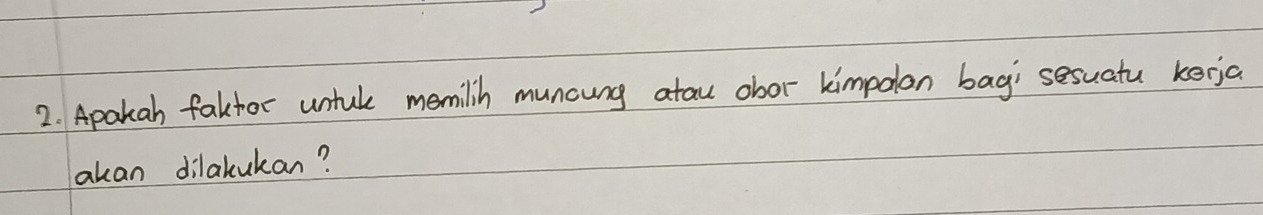 2. Apakah faktor untuk memilih muncung atau obor kimpalan bagi sesuatu kerja
akan dilakukan?